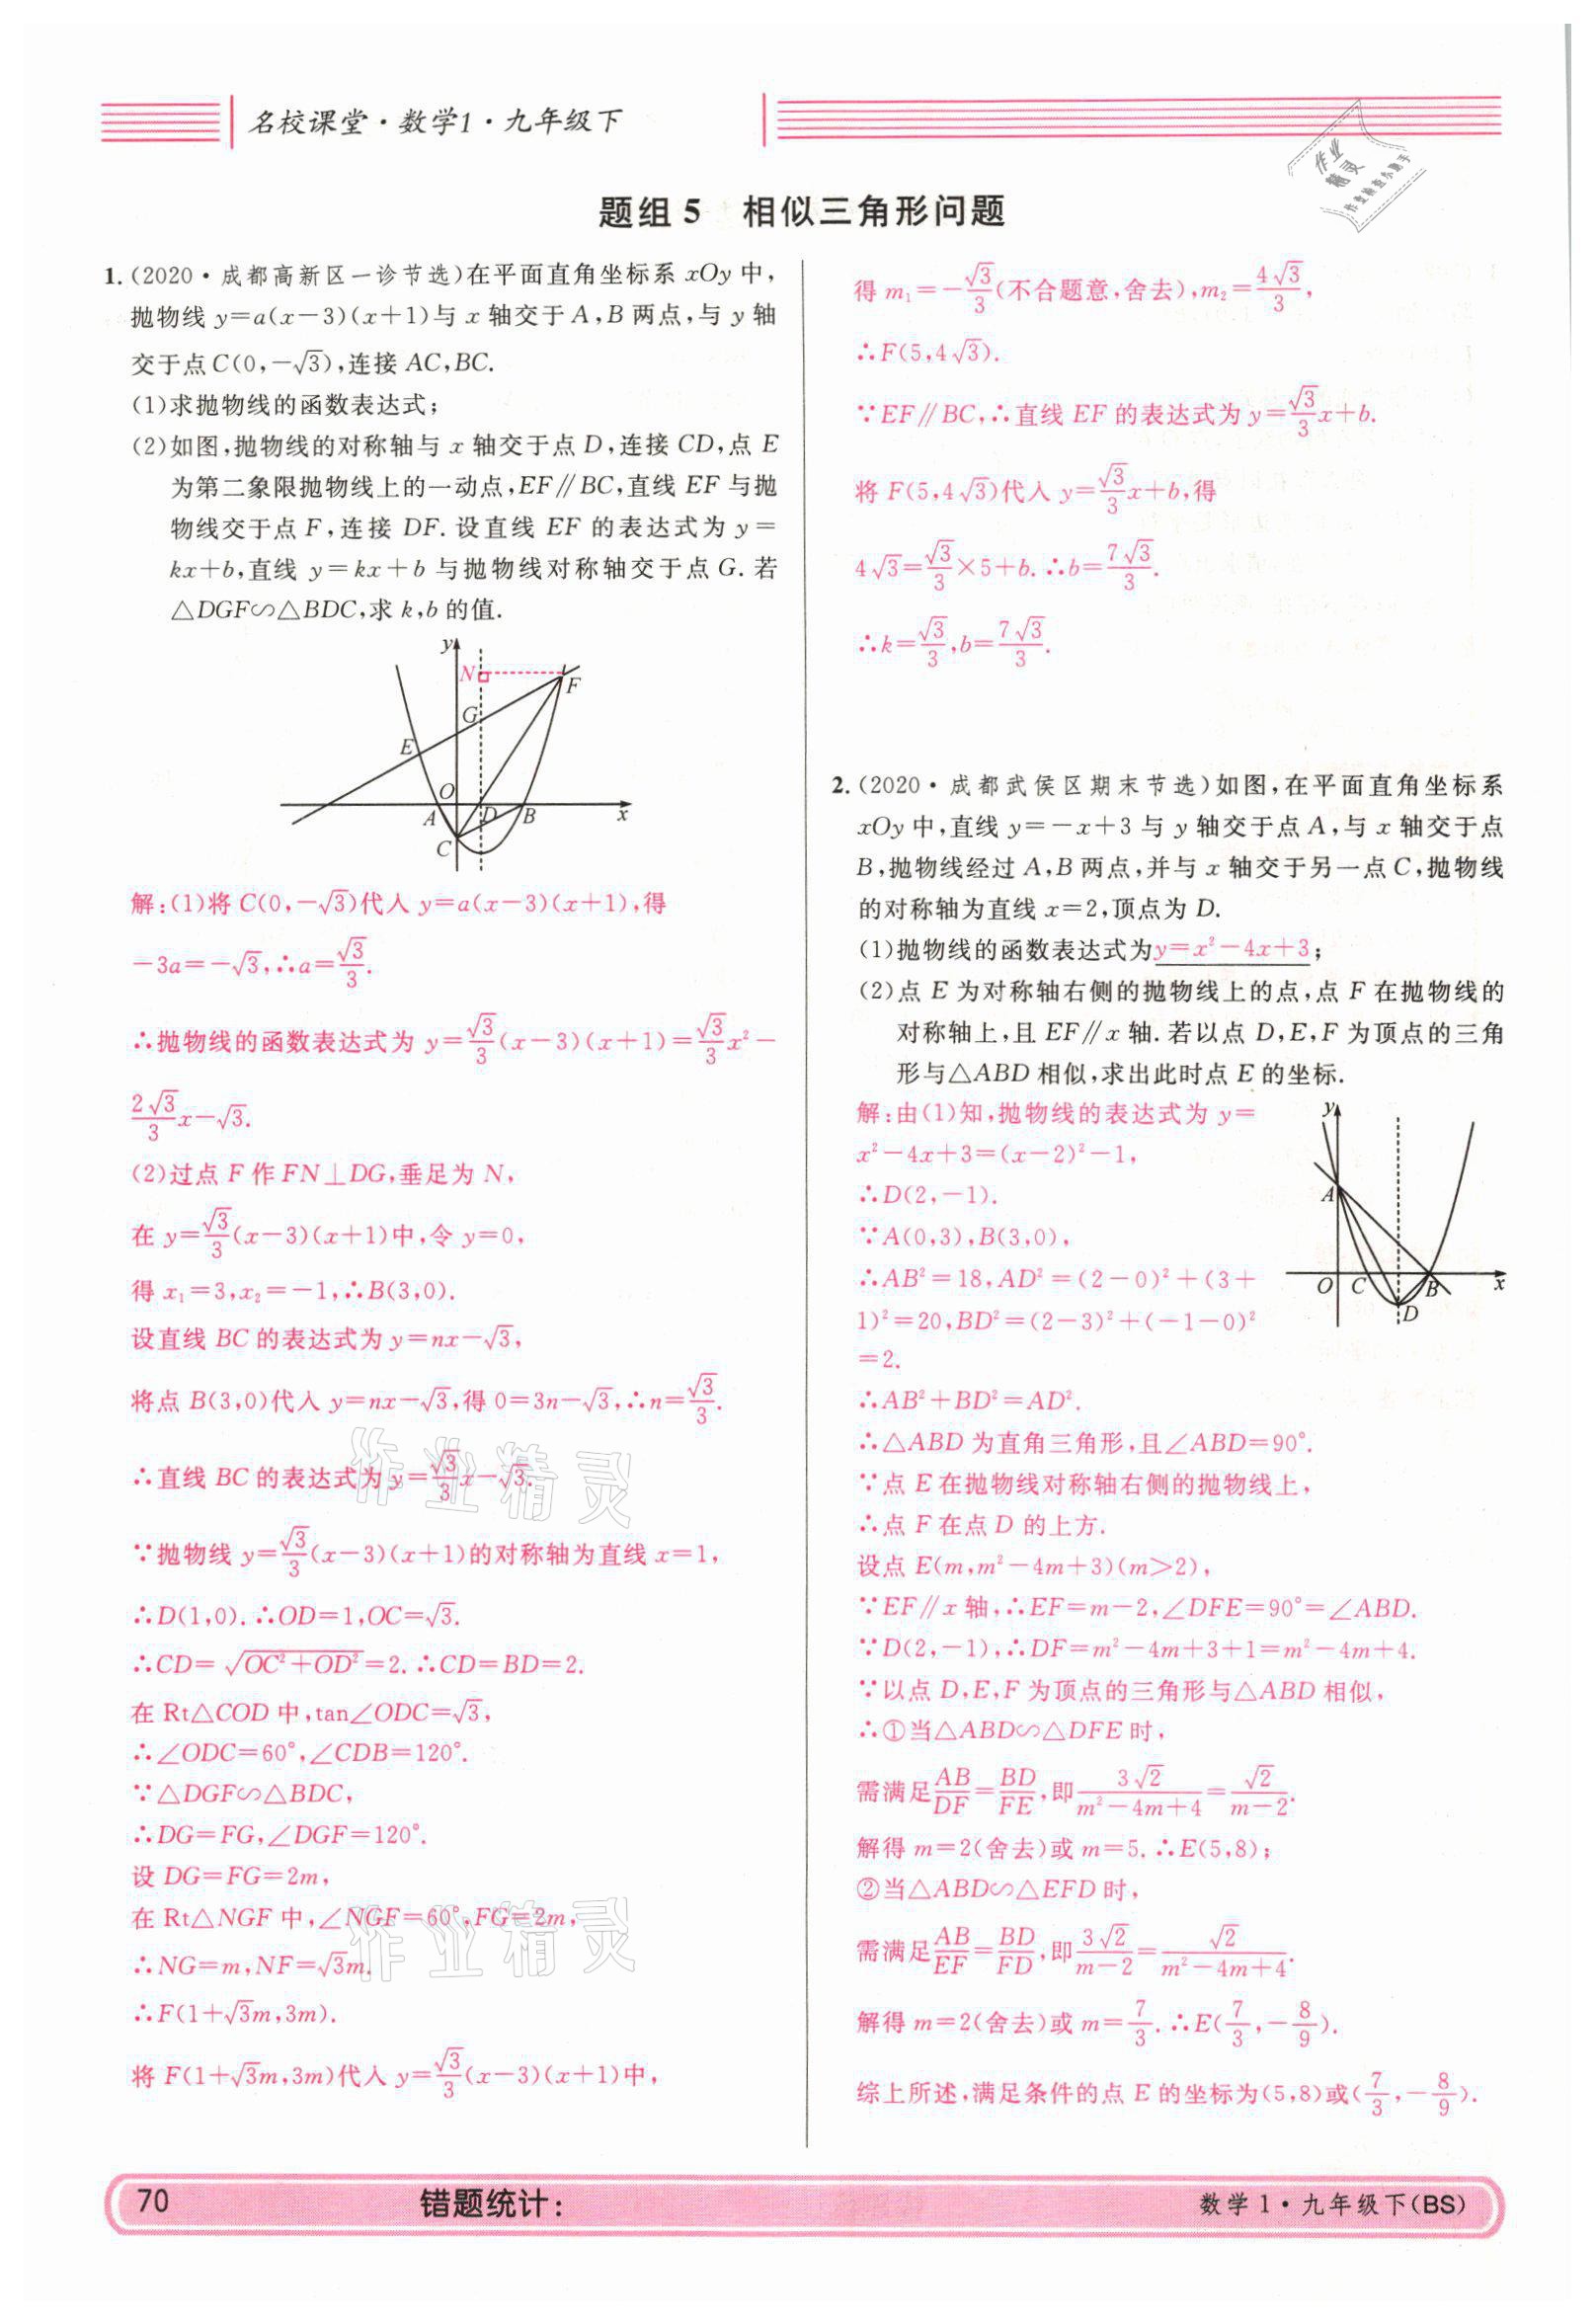 名校课堂·数学1·九年级下
作业
精灵
作业检查小助手
题组5 相似三角形问题
1.(2020·成都高新区一诊节选)在平面直角坐标系 xOy 中,
抛物线 y=a(x-3)(x+1)与 x 轴交于 A,B 两点,与 y 轴
交于点 C(0,-√3),连接 AC,BC.
(1)求抛物线的函数表达式;
(2)如图,抛物线的对称轴与 x 轴交于点 D,连接 CD,点 E
为第二象限抛物线上的一动点,EF∥BC,直线 EF 与抛
物线交于点 F,连接 DF. 设直线 EF 的表达式为 y=
kx+b,直线 y=kx+b 与抛物线对称轴交于点 G. 若
△DGF∽△BDC,求 k,b 的值.
y
N
F
G
E
O
A
D
B
x
C
解:(1)将 C(0,-√3)代入 y=a(x-3)(x+1),得
-3a=-√3,∴a=√3/3.
∴抛物线的函数表达式为 y=√3/3(x-3)(x+1)=√3/3x²-
2√3/3x-√3.
(2)过点 F 作 FN⊥DG,垂足为 N,
在 y=√3/3(x-3)(x+1)中,令 y=0,
得 x₁=3,x₂=-1,∴B(3,0).
设直线 BC 的表达式为 y=nx-√3,
将点 B(3,0)代入 y=nx-√3,得 0=3n-√3,∴n=√3/3.
∴直线 BC 的表达式为 y=√3/3x-√3.
∵抛物线 y=√3/3(x-3)(x+1)的对称轴为直线 x=1,
∴D(1,0). ∴OD=1,OC=√3.
∴CD=√(OC²+OD²)=2. ∴CD=BD=2.
在 Rt△COD 中,tan∠ODC=√3,
∴∠ODC=60°,∠CDB=120°.
∵△DGF∽△BDC,
∴DG=FG,∠DGF=120°.
设 DG=FG=2m,
在 Rt△NGF 中,∠NGF=60°,FG=2m,
∴NG=m,NF=√3m.
∴F(1+√3m,3m).
将 F(1+√3m,3m)代入 y=√3/3(x-3)(x+1)中,
作业精灵
作业精灵
得 m₁=-√3/3(不合题意,舍去),m₂=4√3/3,
∴F(5,4√3).
∵EF∥BC,∴直线 EF 的表达式为 y=√3/3x+b.
将 F(5,4√3)代入 y=√3/3x+b,得
4√3=√3/3×5+b. ∴b=7√3/3.
∴k=√3/3,b=7√3/3.
2.(2020·成都武侯区期末节选)如图,在平面直角坐标系
xOy 中,直线 y=-x+3 与 y 轴交于点 A,与 x 轴交于点
B,抛物线经过 A,B 两点,并与 x 轴交于另一点 C,抛物线
的对称轴为直线 x=2,顶点为 D.
(1)抛物线的函数表达式为y=x²-4x+3;
(2)点 E 为对称轴右侧的抛物线上的点,点 F 在抛物线的
对称轴上,且 EF∥x 轴. 若以点 D,E,F 为顶点的三角
形与△ABD 相似,求出此时点 E 的坐标.
y
A
O
C
B
x
D
解:由(1)知,抛物线的表达式为 y=
x²-4x+3=(x-2)²-1,
∴D(2,-1).
∵A(0,3),B(3,0),
∴AB²=18,AD²=(2-0)²+(3+
1)²=20,BD²=(2-3)²+(-1-0)²
=2.
∴AB²+BD²=AD².
∴△ABD 为直角三角形,且∠ABD=90°.
∵点 E 在抛物线对称轴右侧的抛物线上,
∴点 F 在点 D 的上方.
设点 E(m,m²-4m+3)(m>2),
∵EF∥x 轴,∴EF=m-2,∠DFE=90°=∠ABD.
∵D(2,-1),∴DF=m²-4m+3+1=m²-4m+4.
∵以点 D,E,F 为顶点的三角形与△ABD 相似,
∴①当△ABD∽△DFE 时,
需满足AB/DF=BD/FE,即3√2/(m²-4m+4)=√2/(m-2).
解得 m=2(舍去)或 m=5. ∴E(5,8);
②当△ABD∽△EFD 时,
需满足AB/EF=BD/FD,即3√2/(m-2)=√2/(m²-4m+4).
解得 m=2(舍去)或 m=7/3. ∴E(7/3,-8/9).
综上所述,满足条件的点 E 的坐标为(5,8)或(7/3,-8/9).
70 错题统计: 数学1·九年级下(BS)